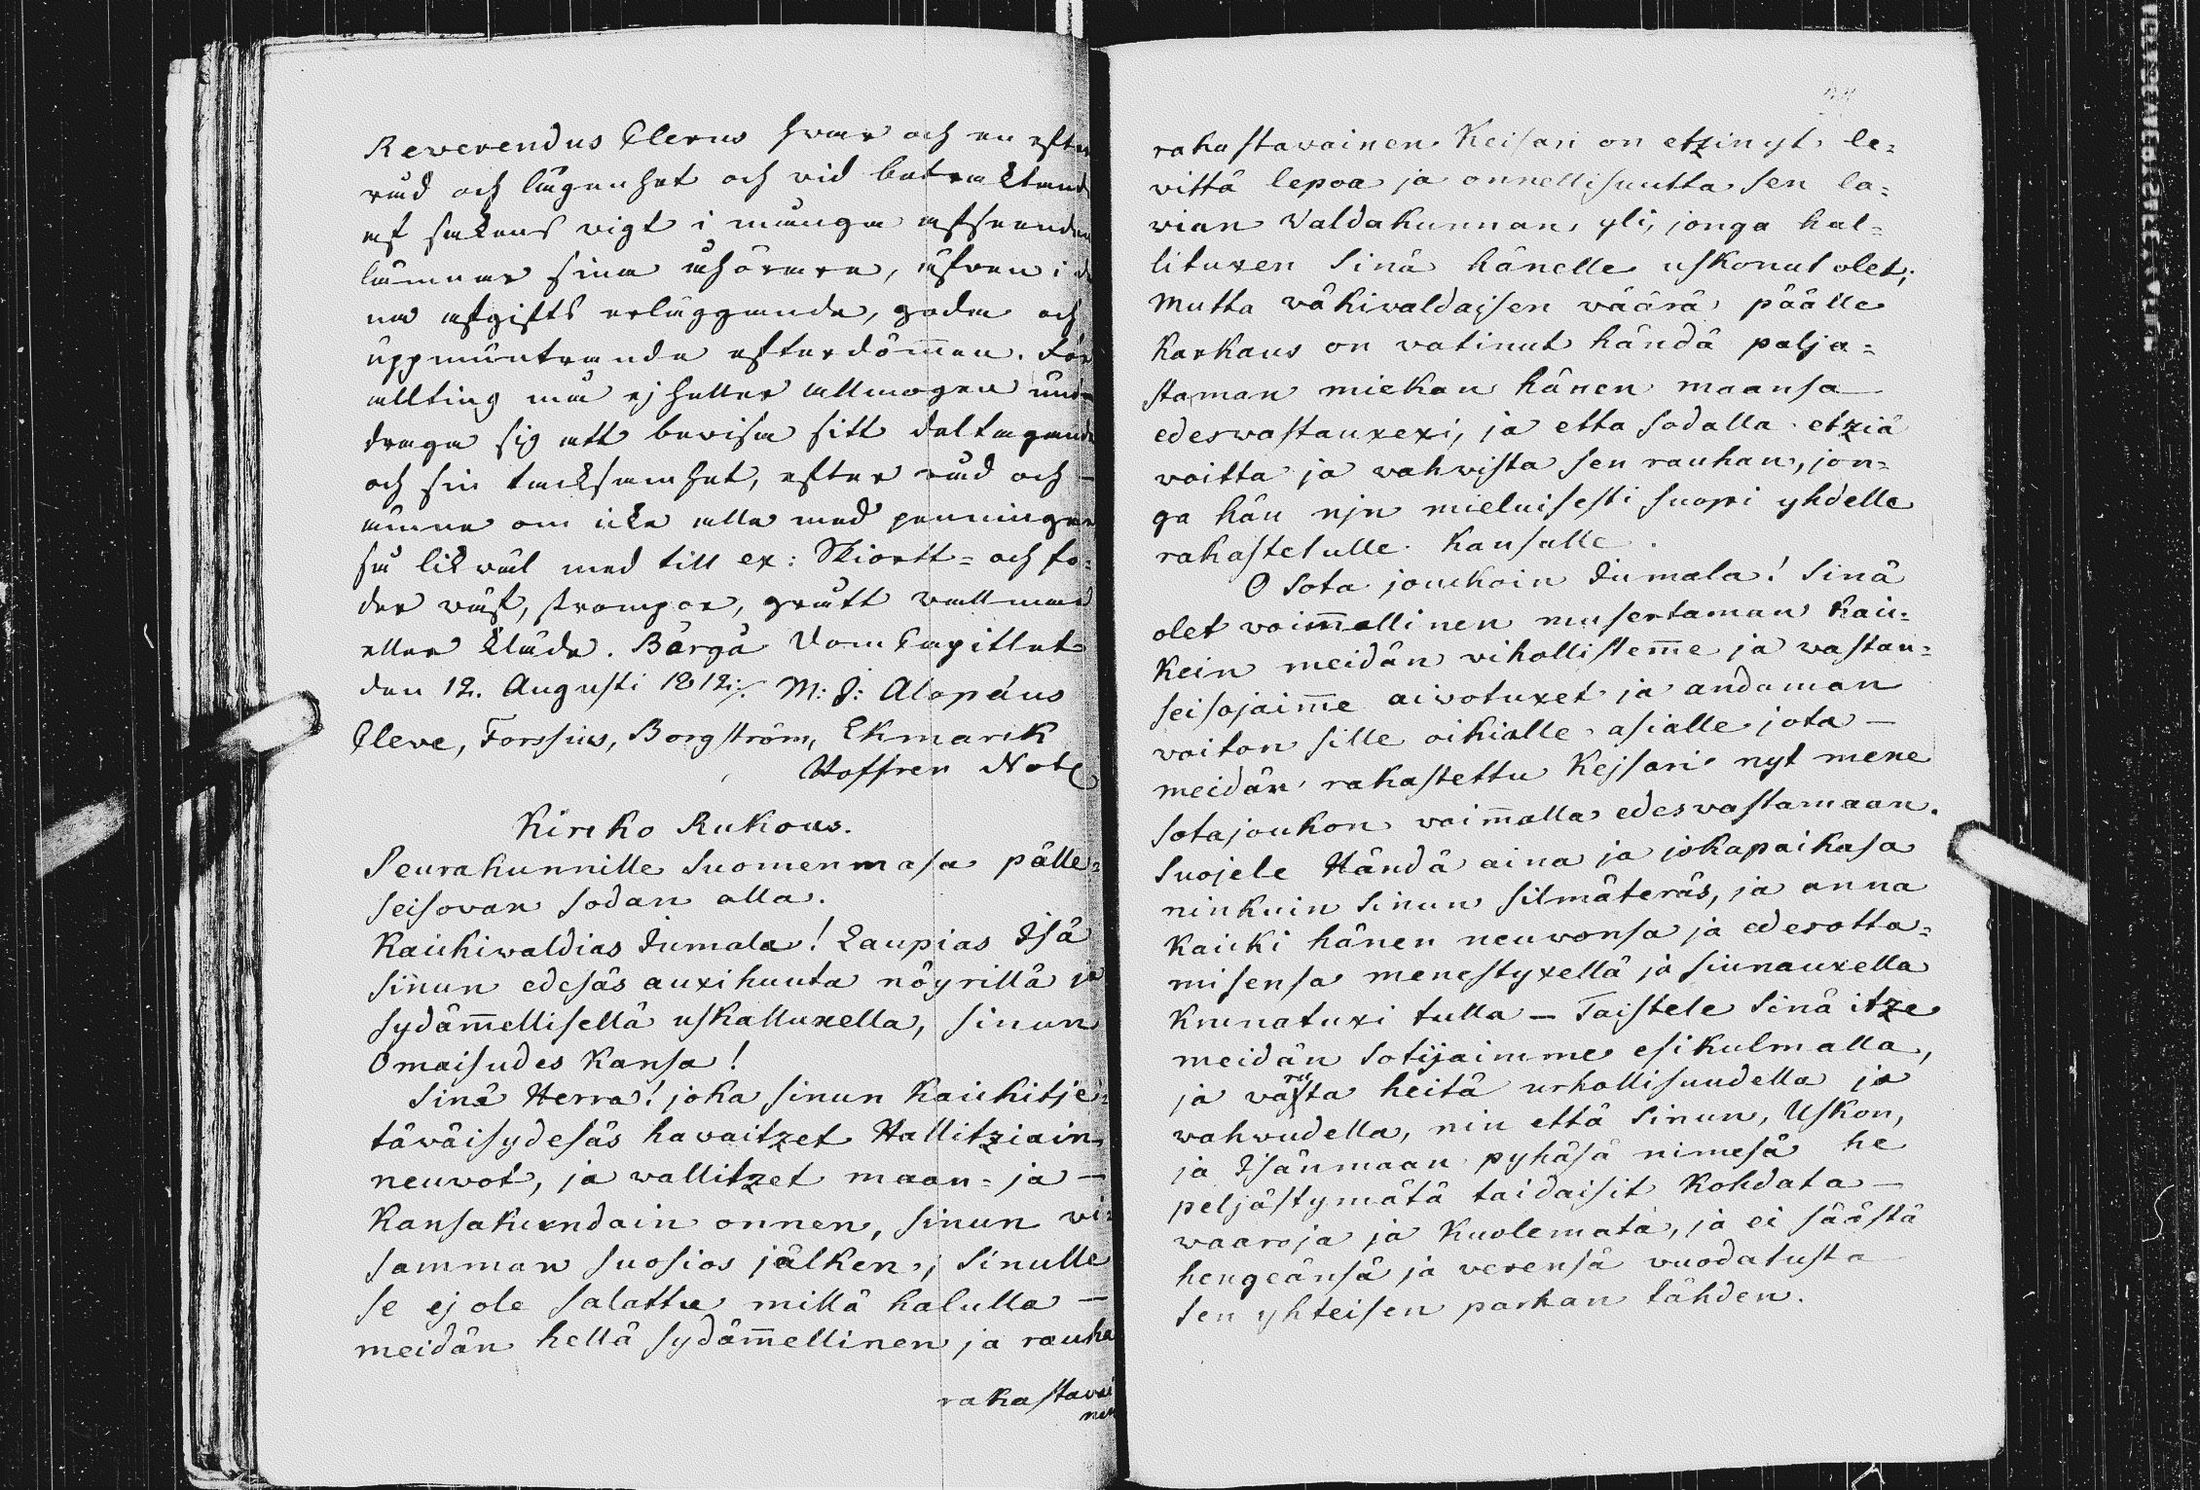 Reverendus Clerus hwar och en efter
råd och lägenhet och vid betraktande
af sakens vigt i många afseenden
lämnar sina åhörare, äfven i de
na afgifts erläggande, goda och
uppmuntrande efterdömen. För
allting må ej heller allmogen und
draga sig att bevisa sitt deltagande
och sin tacksamhet, efter råd och —
ämne om icke alla med penningar
så likwäl med till ex: Skiortt= och fo=
der wäf, strompor, grått wallmar
eller kläde. Bårgå DomCapitlet
den 12. Augusti 1812 ./. M: J: Alopæus
Cleve, Forssius, Borgström, Ekmark
Hoffren Not
Kircko Rukous.
Seurakunnille Suomenmasa pälle=
seisovan sodan alla.
Kaickiwaldias Jumala! Laupias Isä
sinun edesäs auxihuuta nöyrillä ja
sydäm̄ellisellä uskalluxella, sinun
Omaisudes Kansa!
Sinä Herra! joka sinun Kaickitje=
täwäisydesäs havaitzet Hallitziain
neuwot, ja wallitzet maan= ja —
Kansakundain onnen, sinun wi=
samman suosios jälken; Sinulle
se ej ole salattu millä halulla —
meidän hellä sydäm̄ellinen ja rauha
rakastavai
nen
rakastavainen Keisari on etzinyt le=
vittä lepoa ja onnellisuutta sen la=
wian Valdakunnan yli, jonga hal=
lituxen Sinä hänelle uskonut olet;
Mutta väkiwaldaisen wäärä päälle
karkaus on vatinut händä palja=
staman miekan hänen maansa
edeswastauxexi, ja etta sodalla etziä
voitta ja wahwista sen rauhan, jon=
ga hän njn mieluisesti suopi yhdelle
rakastetulle Kansalle.
O Sota jouckoin Jumala! Sinä
olet voim̄allinen musertaman Kaic=
kein meidän vihollistem̄e ja wastan=
seisojaim̄e aiwotuxet ja andaman
voiton sille oikialle asialle jota —
meidän rakastettu Kejsari nyt mene
sotajoukon woim̄alla edeswastamaan.
Suojele Händä aina ja jokapaikasa
ninkuin Sinun silmäteräs, ja anna
Kaicki hänen neuwonsa ja edesotta=
misensa menestyxellä ja siunauxella
Krunatuxi tulla — Taistele Sinä itze
meidän Sotijaimme esikulmalla,
ja wasta heitä urhollisuudella ja
wahwudella, nin että Sinun, Uskon,
ja Isänmaan pyhäsä nimesä he
peljästymätä taidaisit Kohdata —
waaroja ja Kuolemata, ja ei säästä
hengeänsä ja verensä wuodatusta
sen yhteisen parhan tähden.